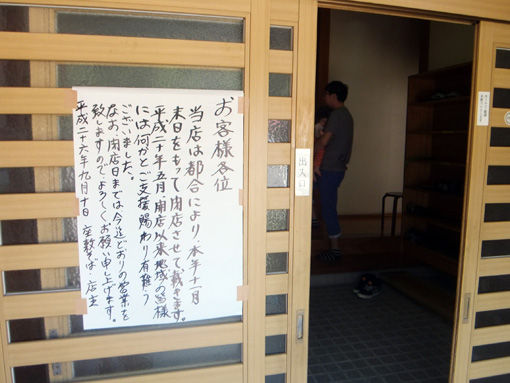 お客様各位
当店は都合により、本年十一月
末日をもって閉店させて戴きます。
平成二十年五月開店以来地域の皆様
には何かとご支援賜わり有難う
ございました。
なお、閉店日までは今迄どおりの営業を
致しますので、よろしくお願い申し上げます。
平成二十六年九月十日 座敷そば 店主
出入口